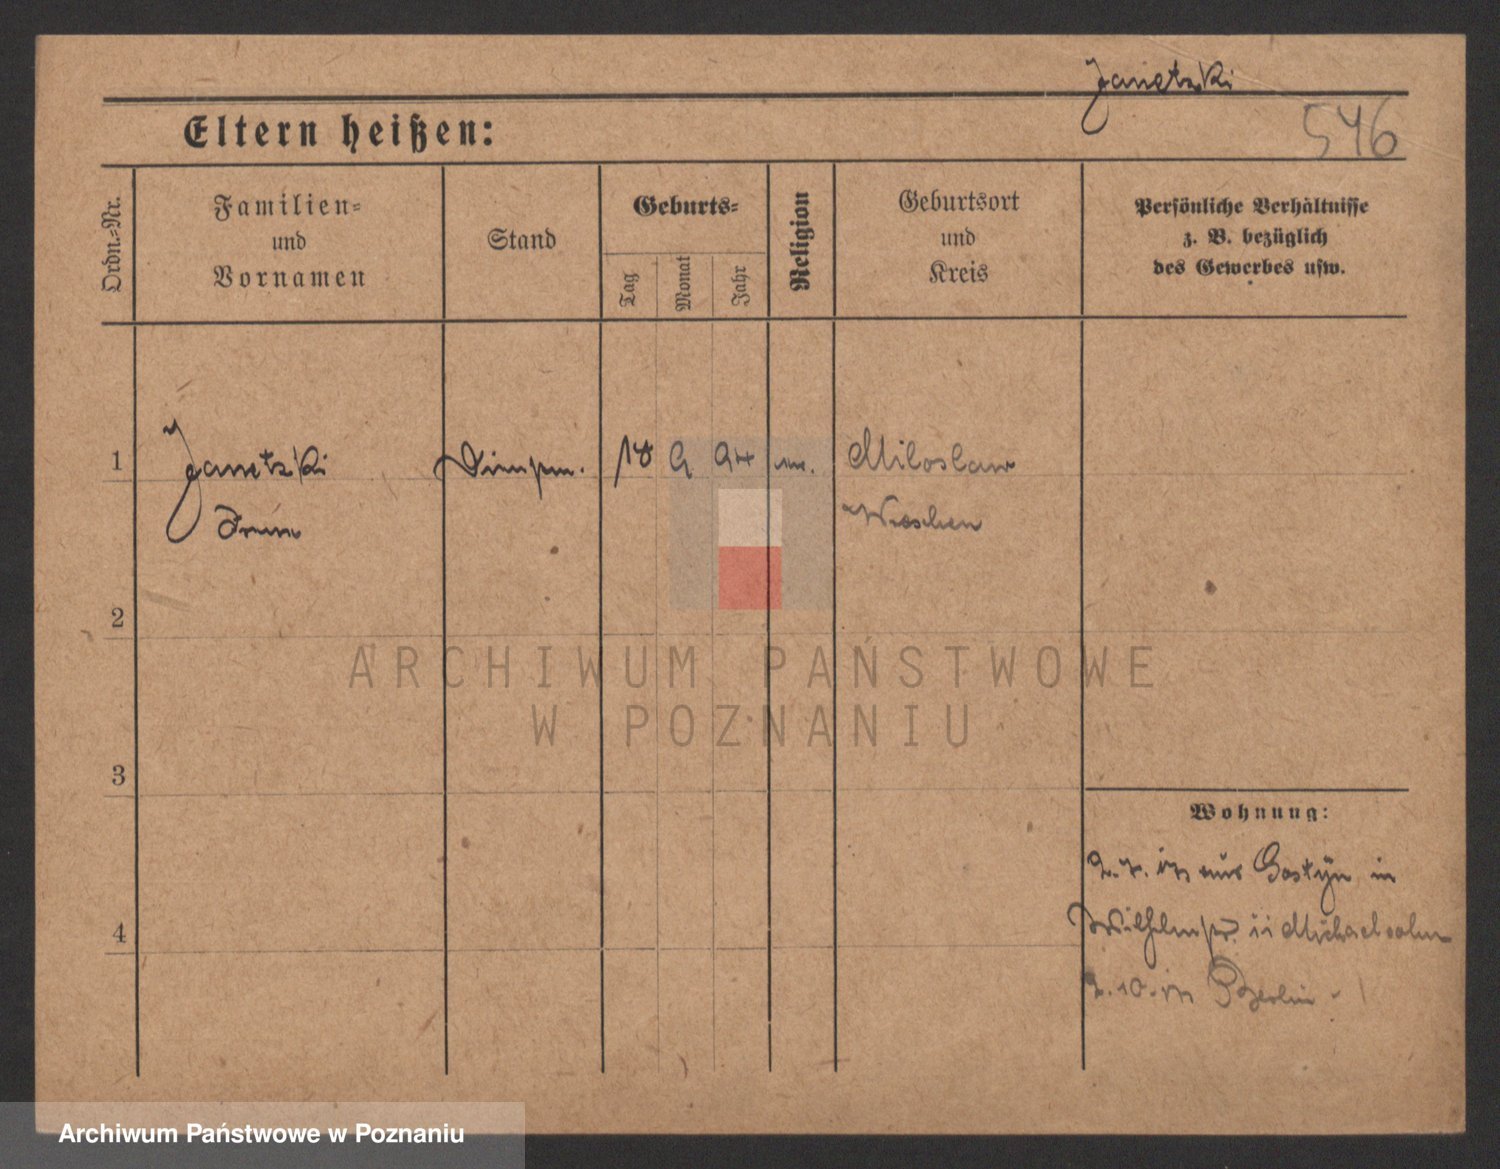 Janetzki
546
Eltern heißen:
Ordn.-Nr.
Familien-
und
Vornamen
Stand
Geburts-
Tag
Monat
Jahr
Religion
Geburtsort
und
Kreis
Persönliche Verhältnisse
z. B. bezüglich
des Gewerbes usw.
1
Janetzki
18 9 94
Miloslaw
Wreschen
2
3
4
Wohnung:
aus Gostyn in
Michaelsohn
Berlin
ARCHIWUM PAŃSTWOWE
W POZNANIU
Archiwum Państwowe w Poznaniu